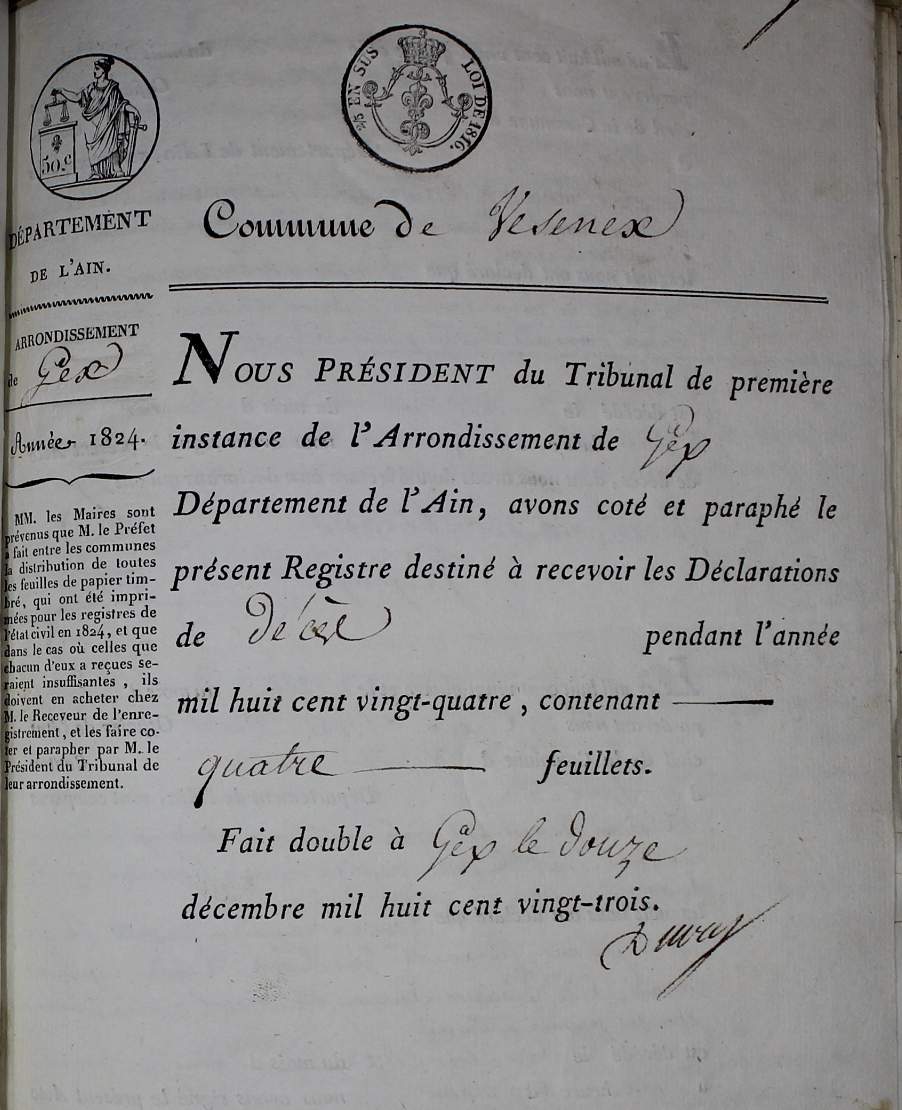 50.c
2/5 EN SUS
LOI DE 1816.
DÉPARTEMENT
DE L'AIN.
ARRONDISSEMENT
de Gex
Année 1824.
MM. les Maires sont
prévenus que M. le Préfet
a fait entre les communes
la distribution de toutes
les feuilles de papier tim-
bré, qui ont été impri-
mées pour les registres de
l'état civil en 1824, et que
dans le cas où celles que
chacun d'eux a reçues se-
raient insuffisantes, ils
doivent en acheter chez
M. le Receveur de l'enre-
gistrement, et les faire co-
ter et parapher par M. le
Président du Tribunal de
leur arrondissement.
Commune de Vesenex
NOUS PRÉSIDENT du Tribunal de première
instance de l'Arrondissement de Gex
Département de l'Ain, avons coté et paraphé le
présent Registre destiné à recevoir les Déclarations
de Décès pendant l'année
mil huit cent vingt-quatre, contenant
quatre feuillets.
Fait double à Gex le douze
décembre mil huit cent vingt-trois.